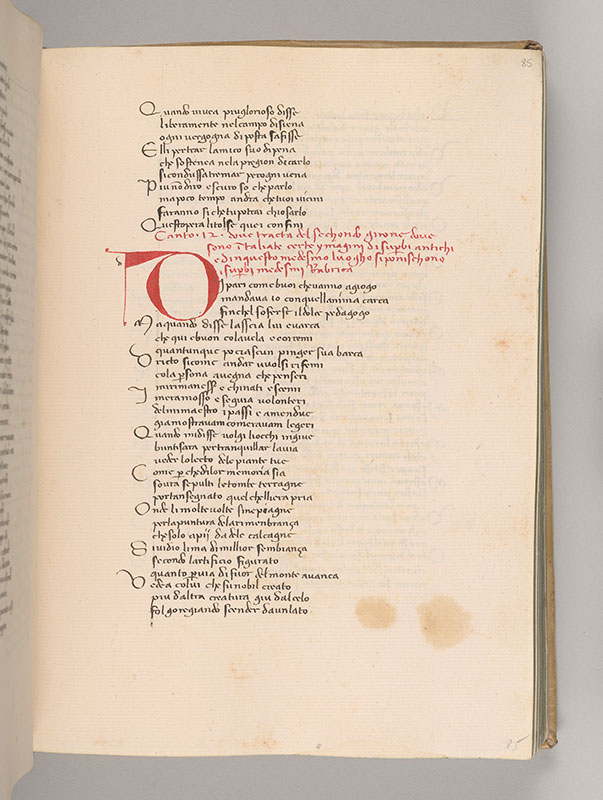 85
Quando vivea piu glorioso disse
liberamente nel campo di siena
ogni vergogna diposta saffisse
Elli per trar lamico suo di pena
che sostenea nela pregion de carlo
si condussa tremar per ogni vena
Piu nō diro e scuro so che parlo
ma poco tempo andra che tuoi vicini
faranno si che tu potrai chiosarlo
Questopera li tolse quei confini
Canto · 12 · dove tracta del sechondo girone dove
sono Ītaliate certe ymagini di supbi antichi
e di questo medesmo luogho si ponischono
i supbi medesmi Rubrica
DI pari come buoi che vanno a giogo
mandava io con quellanima carca
fin chel soferse il dolce pedagogo
Ma quando disse lascia lui e varca
che qui e buon cola vela e coi remi
quantunque po ciascun pinger sua barca
Dricto si come andar vuolsi rifemi
cola psona avegna che penseri
mi rimanesser e chinati e scemi
I mera mosso e seguia volonteri
del mi maestro i passi e amendue
gia mostravam comeravam legeri
Quando mi disse volgi liocchi in giue
buon ti sara per tranquillar la via
veder lo lecto dele piante tue
Come p che di lor memoria sia
sovra sepulti le tombe terragne
portan segnato quel chelli era pria
Onde li molte volte sine piagne
per la puntura dela rimenbrança
che solo a pij da dele calcagne
Si vidio li ma di millior sembiança
secondo lartificio figurato
quanto p via di fuor del monte avança
Vedea colui che fu nobil creato
piu daltra creatura giu dal celo
folgoregiando scender da un lato
85